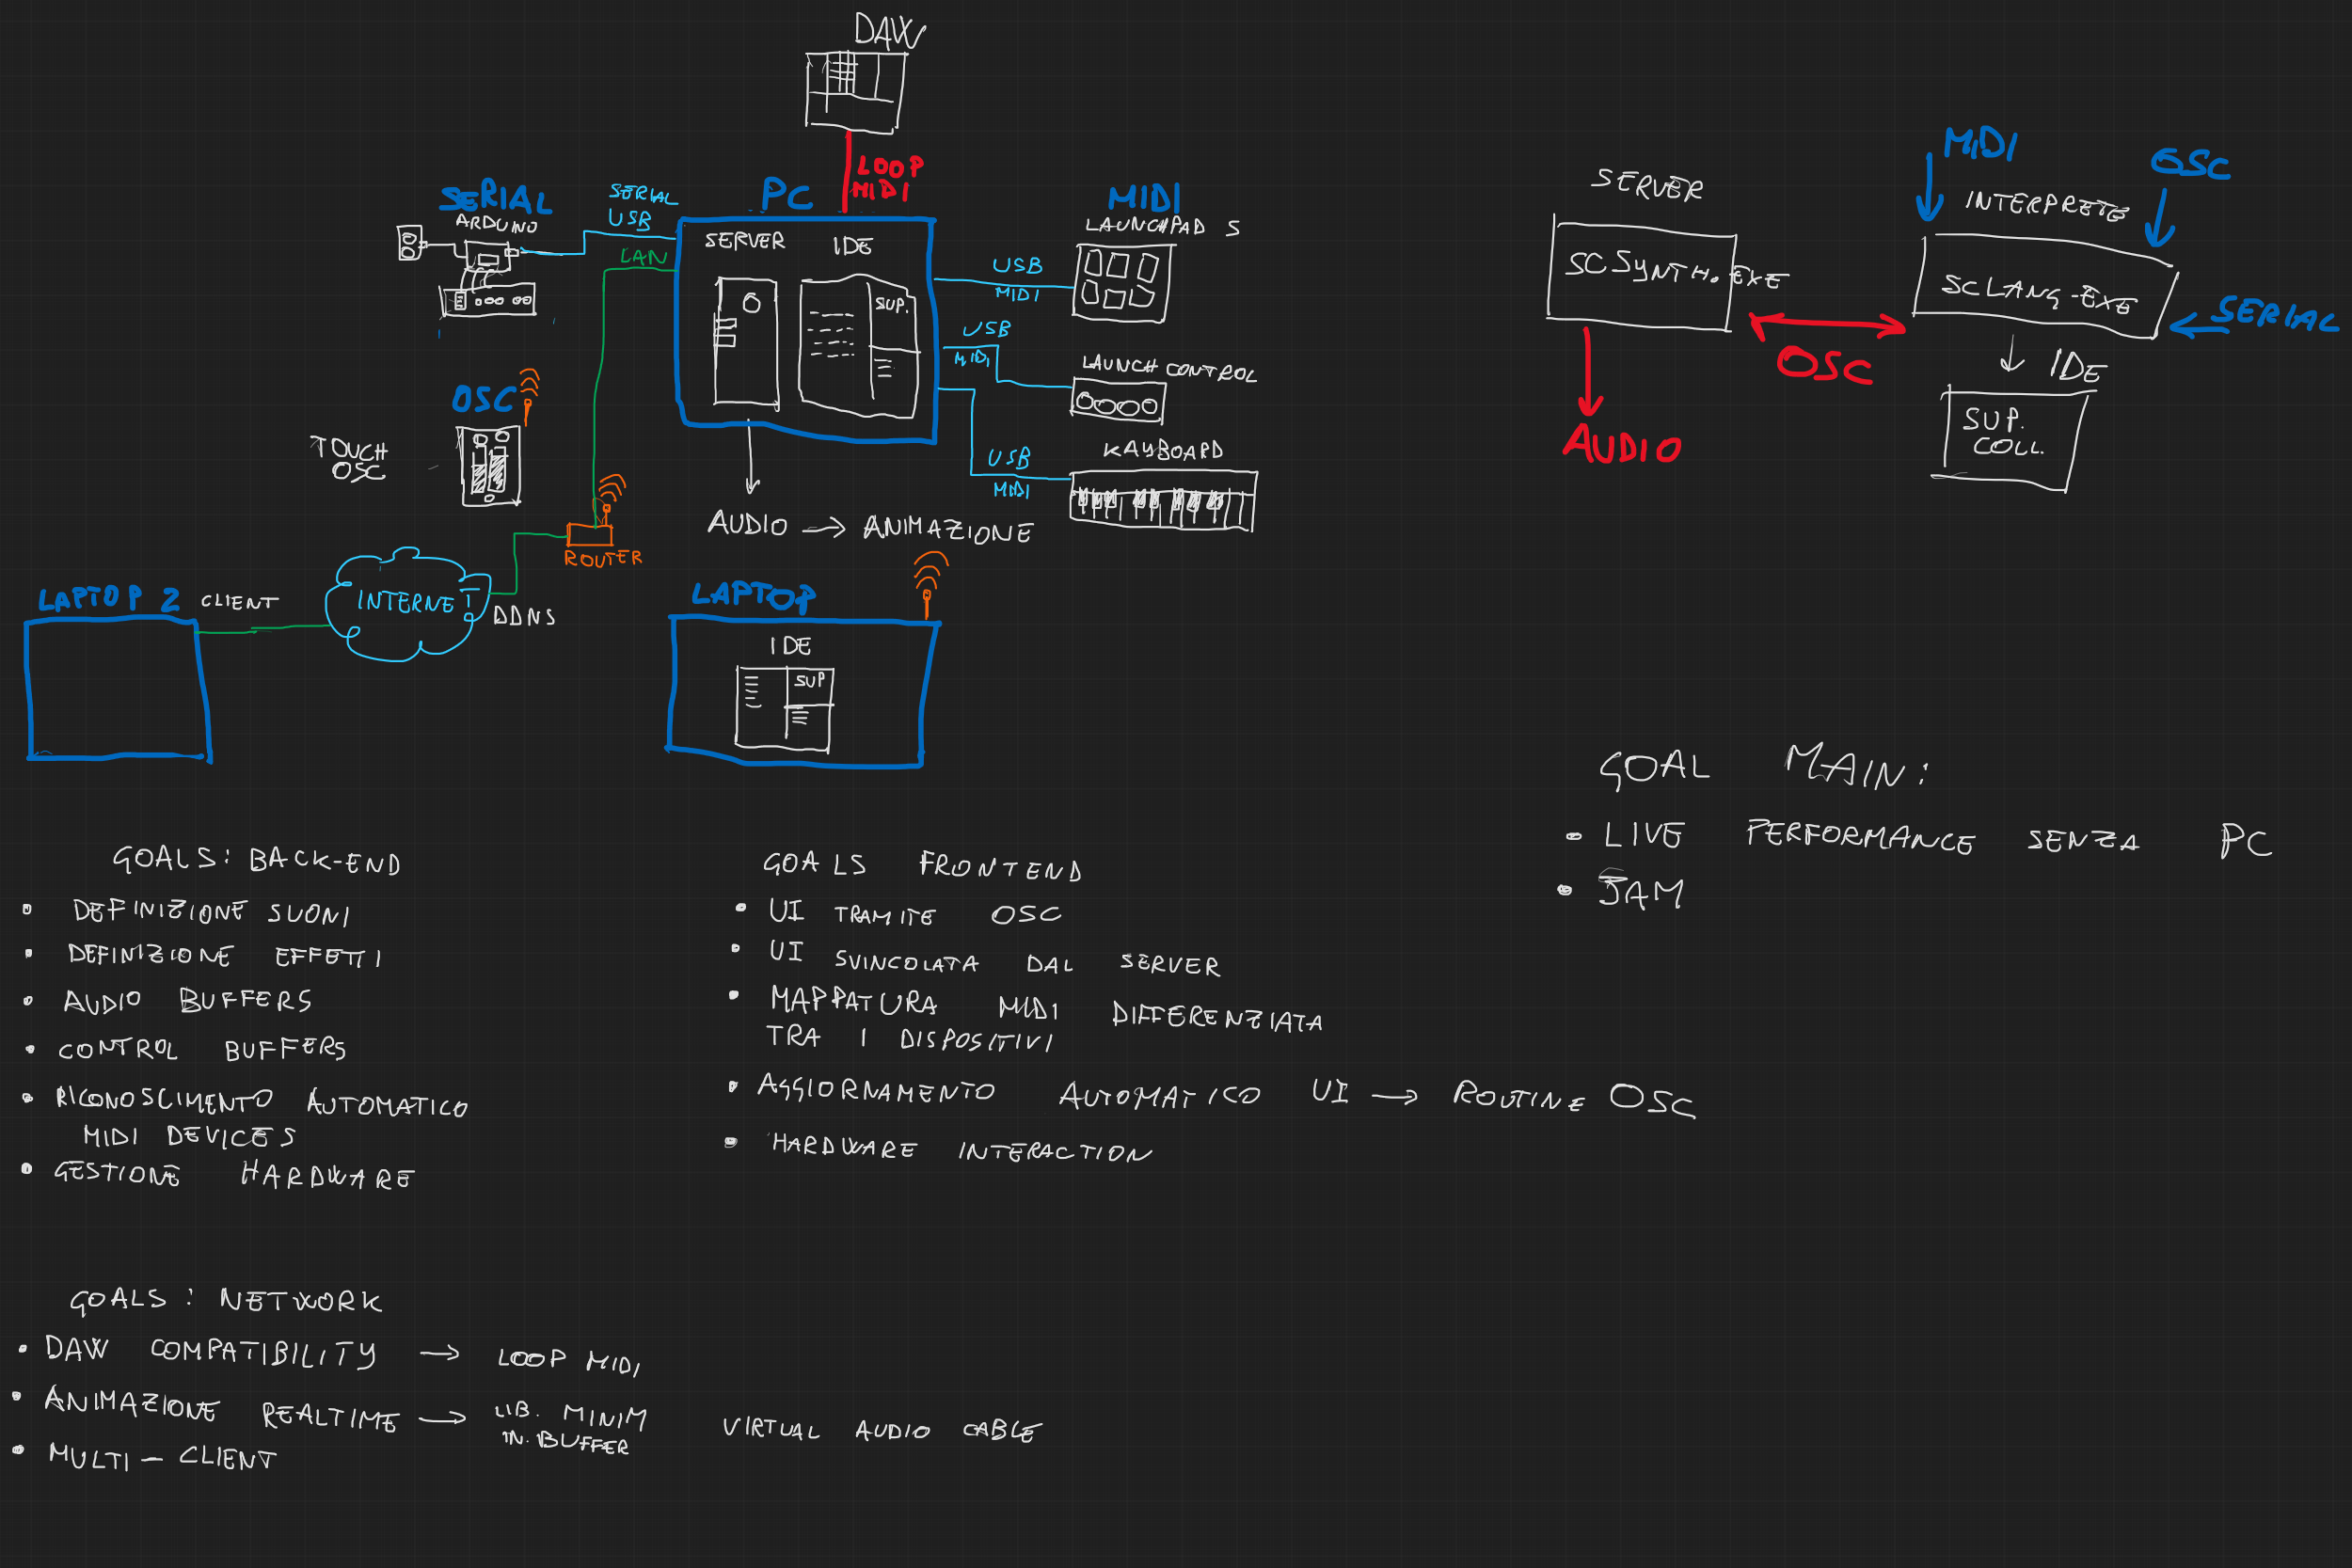 DAW
LOOP
MIDI
SERIAL
ARDUINO
SERIAL
USB
LAN
PC
SERVER
IDE
SUP.
MIDI
LAUNCHPAD S
USB
MIDI
USB
MIDI
LAUNCH CONTROL
USB
MIDI
KAYBOARD
OSC
TOUCH
OSC
AUDIO → ANIMAZIONE
ROUTER
LAPTOP 2
CLIENT
INTERNET
DDNS
LAPTOP
IDE
SUP
SERVER
SCSYNTH.EXE
AUDIO
OSC
MIDI
OSC
INTERPRETE
SCLANG-EXE
SERIAL
IDE
SUP.
COLL.
GOAL MAIN:
• LIVE PERFORMANCE SENZA PC
• JAM
GOALS: BACK-END
• DEFINIZIONE SUONI
• DEFINIZIONE EFFETTI
• AUDIO BUFFERS
• CONTROL BUFFERS
• RICONOSCIMENTO AUTOMATICO
MIDI DEVICES
• GESTIONE HARDWARE
GOALS FRONTEND
• UI TRAMITE OSC
• UI SVINCOLATA DAL SERVER
• MAPPATURA MIDI DIFFERENZIATA
TRA I DISPOSITIVI
• AGGIORNAMENTO AUTOMATICO UI → ROUTINE OSC
• HARDWARE INTERACTION
GOALS: NETWORK
• DAW COMPATIBILITY → LOOP MIDI
• ANIMAZIONE REALTIME → LIB. MINIM VIRTUAL AUDIO CABLE
IN. BUFFER
• MULTI-CLIENT